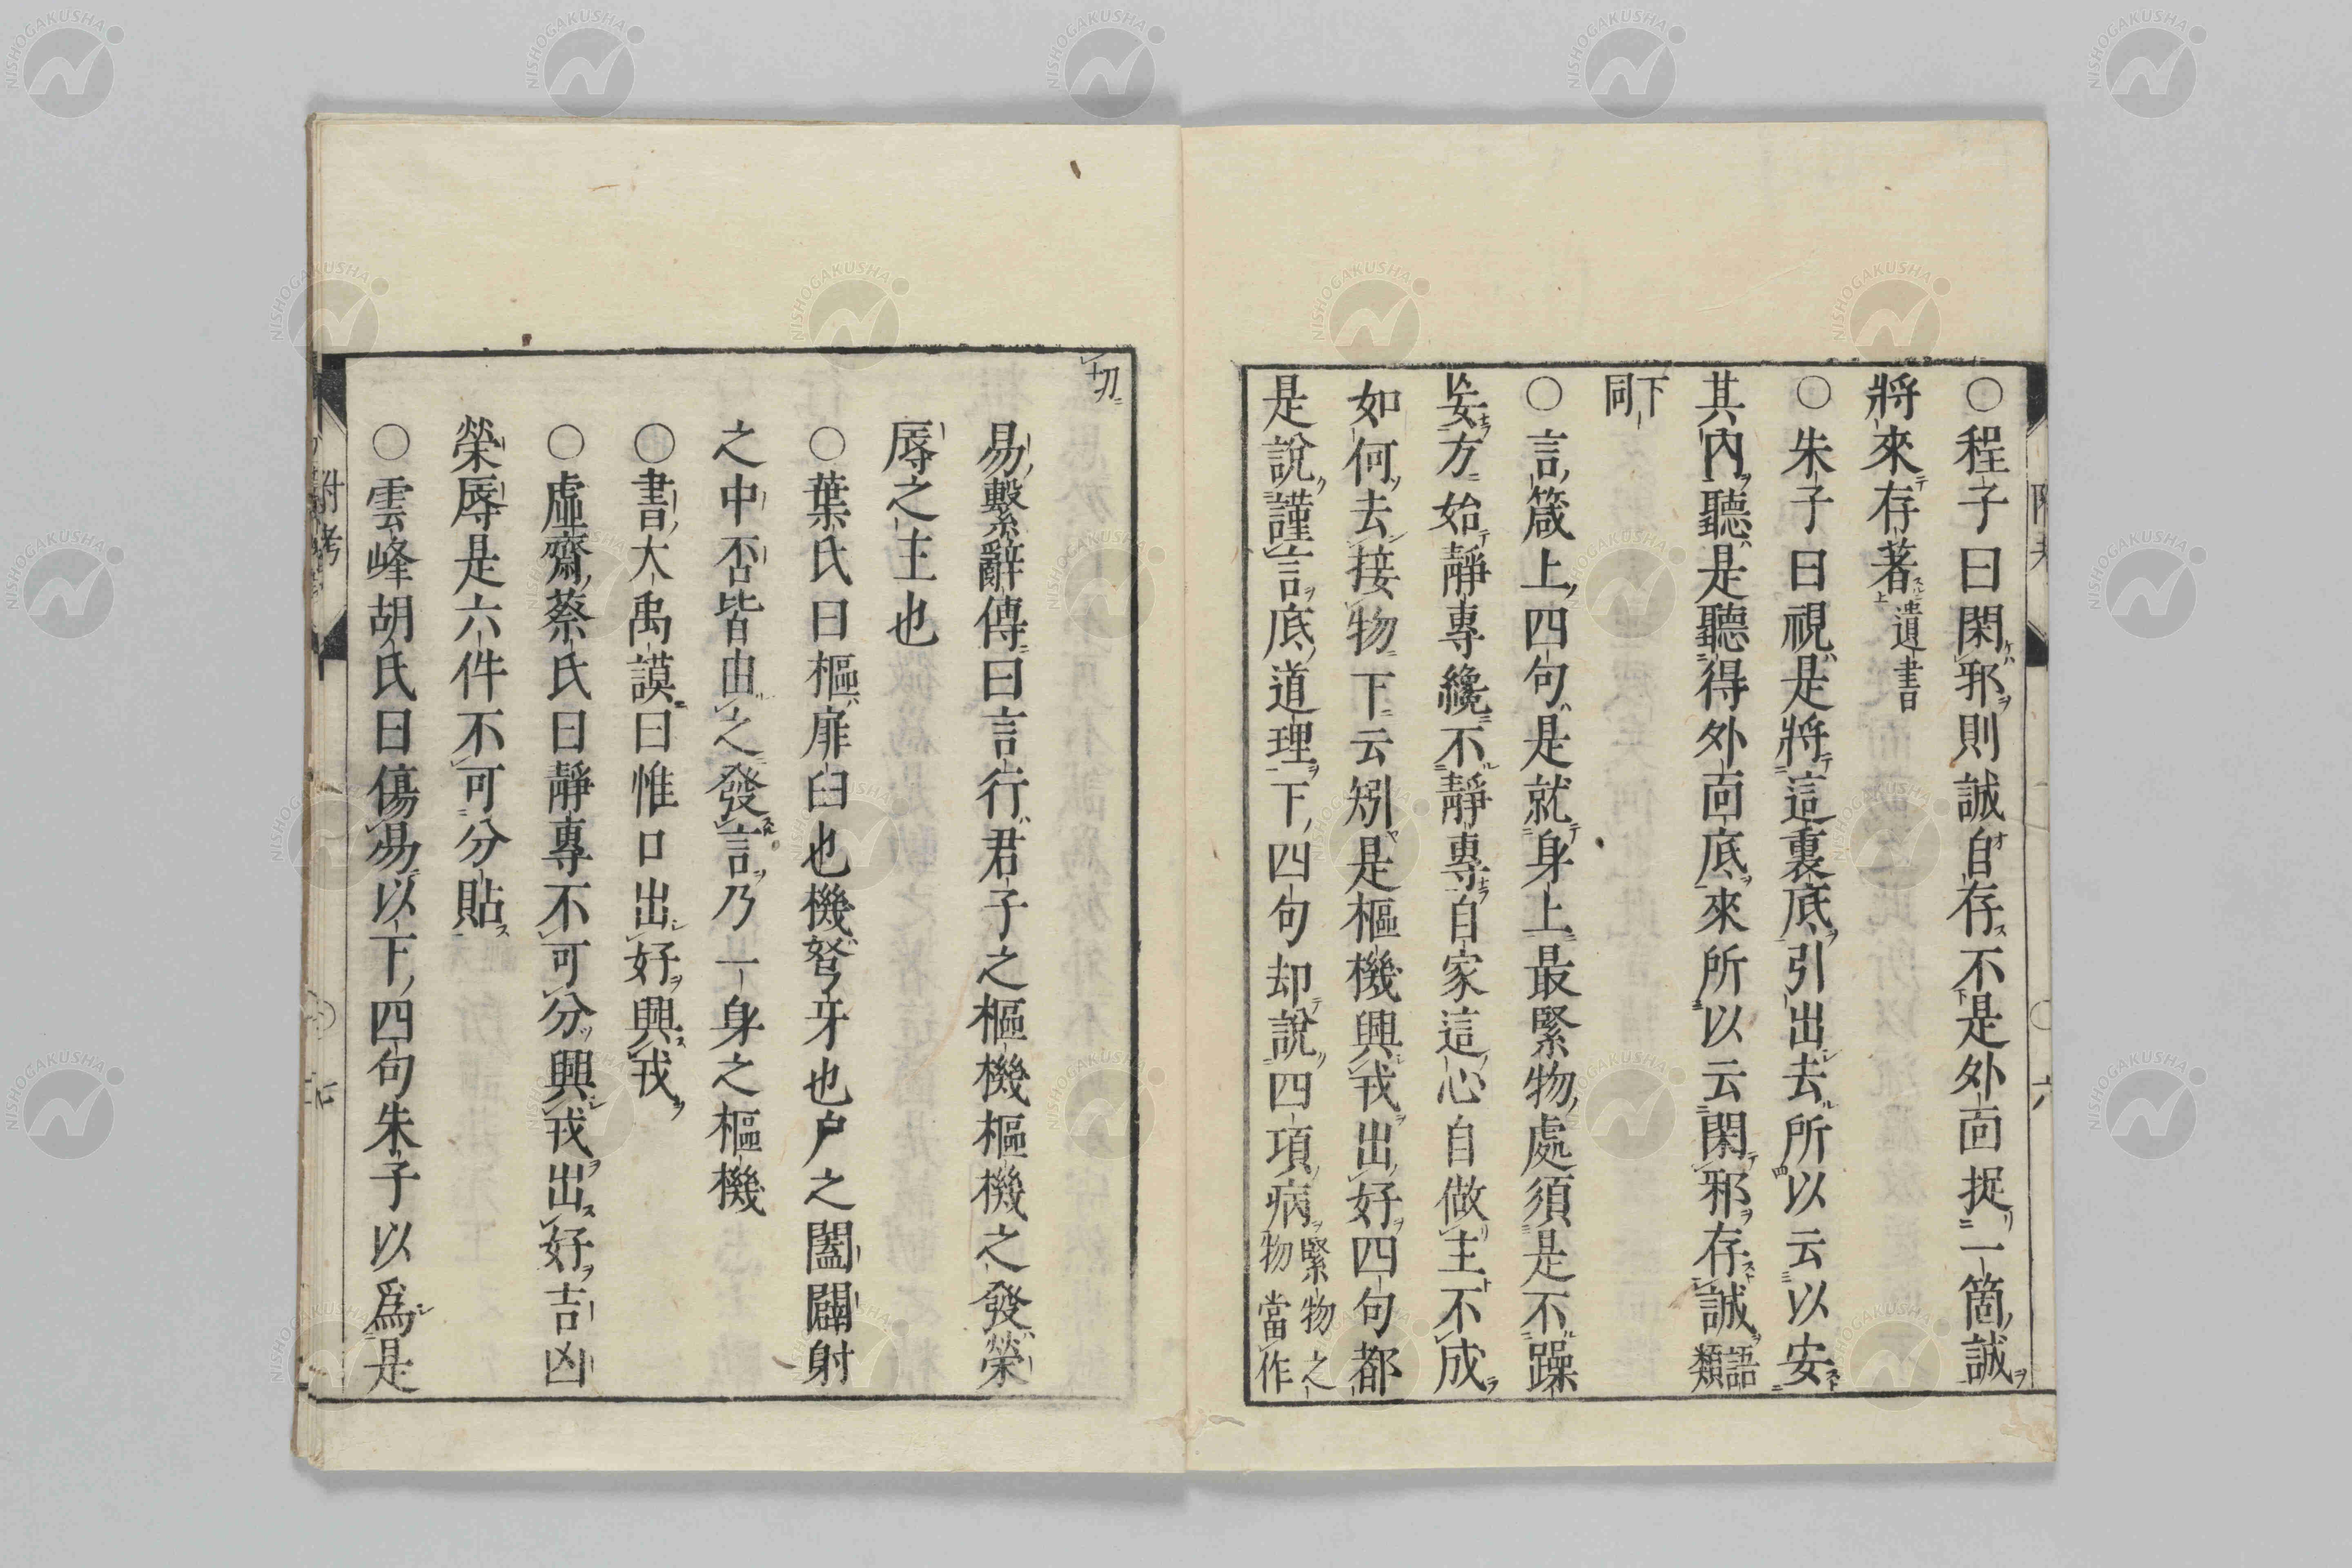 ○程子曰閑邪則誠自存不是外面捉一箇誠
將來存著遺書
○朱子曰視是將這裏底引出去所以云以安
其內聽是聽得外面底來所以云閑邪存誠語類
下同
○言箴上四句是就身上最緊物處須是不躁
妄方始靜專纔不靜專自家這心自做主不成
如何去接物下云矧是樞機興戎出好四句都
是說謹言底道理下四句却說四項病緊物之物當作
切
易繫辭傳曰言行君子之樞機樞機之發榮
辱之主也
○葉氏曰樞扉臼也機弩牙也戶之闔闢射
之中否皆由之發言乃一身之樞機
○書大禹謨曰惟口出好興戎
○虛齋蔡氏曰靜專不可分興戎出好吉凶
榮辱是六件不可分貼
○雲峰胡氏曰傷易以下四句朱子以爲是
附考